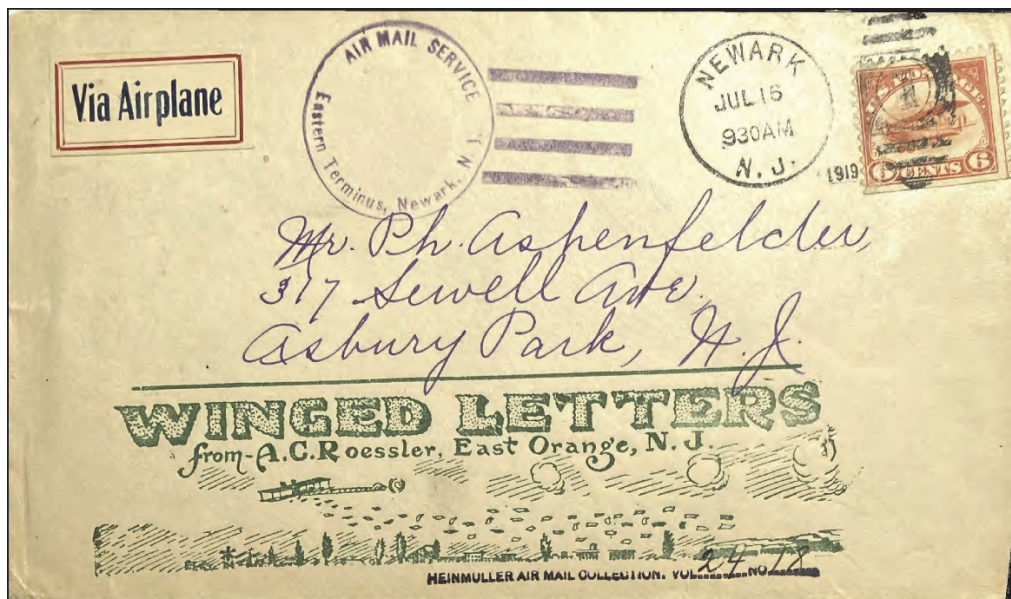 Via Airplane
AIR MAIL SERVICE
Eastern Terminus, Newark, N. J.
NEWARK
JUL 16
930AM
N. J.
1919
6 CENTS 6
Mr. Ph. Aspenfelder,
317 Sewell Ave.
Asbury Park, N. J.
WINGED LETTERS
from-A.C.Roessler, East Orange, N. J.
HEINMULLER AIR MAIL COLLECTION. VOL. 24 NO. 18